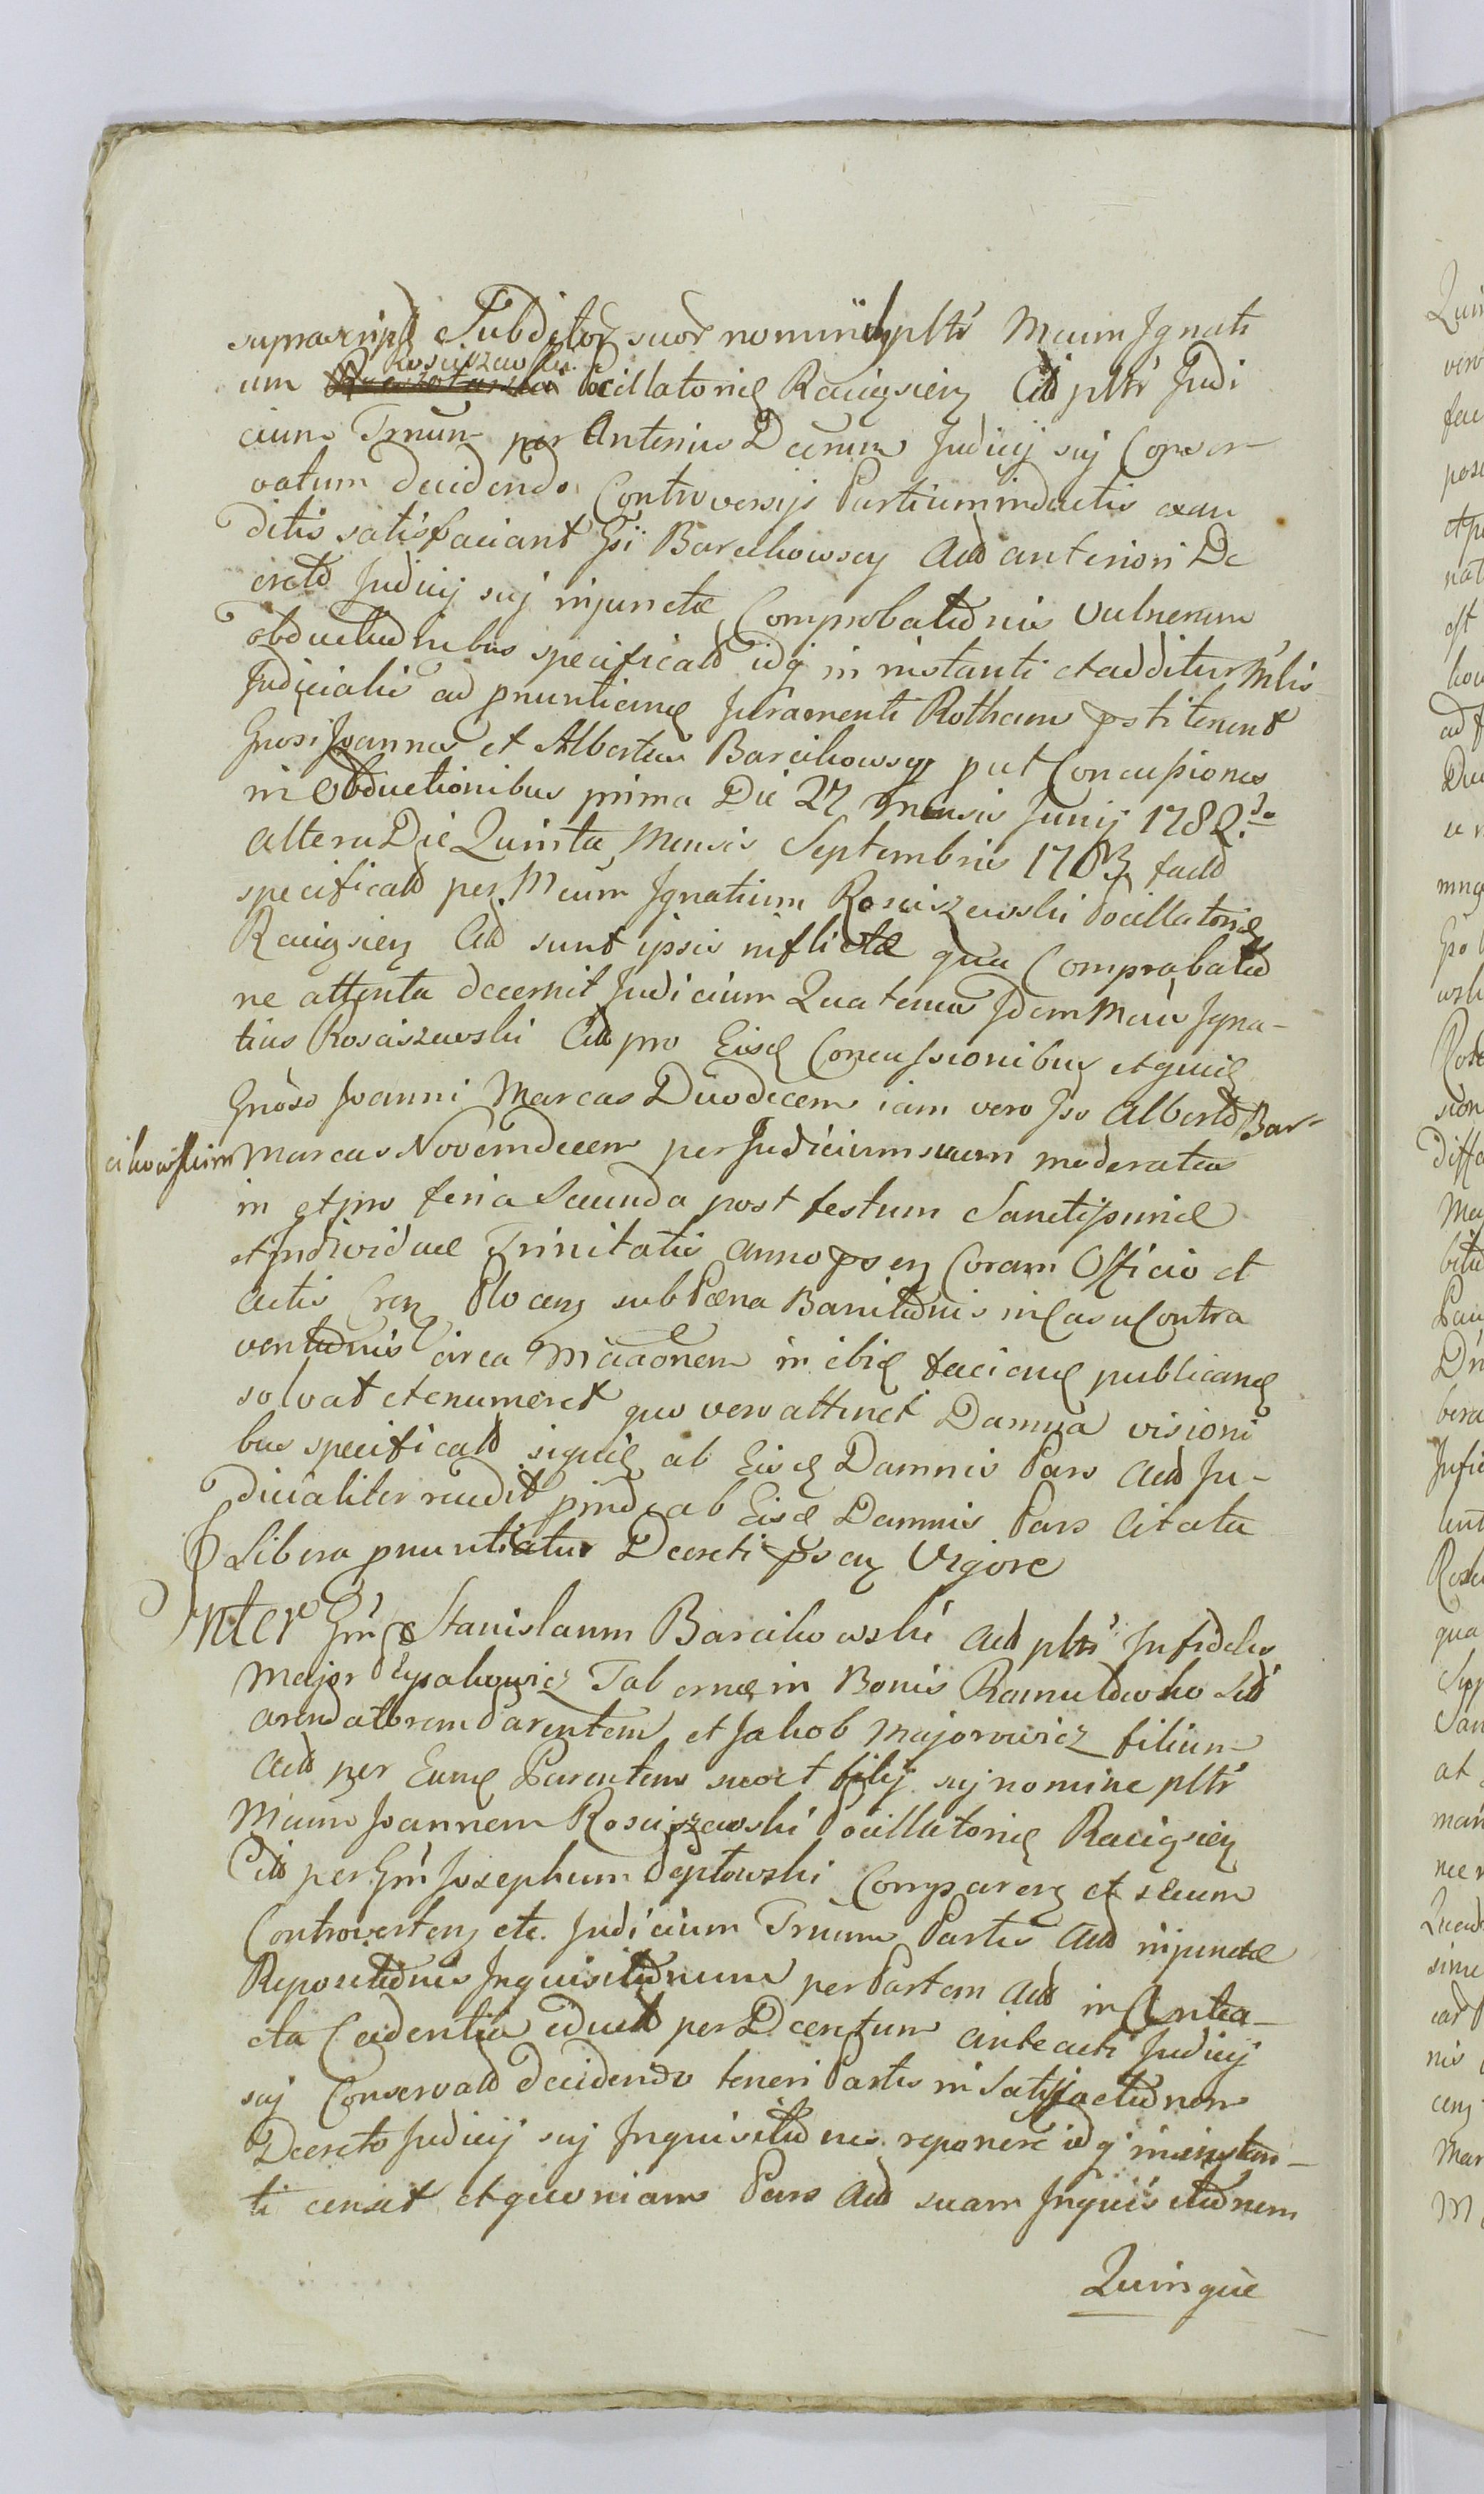 suprascript Subditor suor nominib pltr Mcum Ignati
um Rosciszewski Pocillatorid Raciązien Citt pltr Judi
cium Trnum per Anterius Dcrum Judicij sui Conser
vatum decidendo Controversijs Partium inductis exau
ditis satisfaciant Gsi Barcikowscy Actt anteriori De
creto Judicij sui injunctæ Comprobatdnis Vulnerum
obductiodnibus specificatt idq in instanti et additur Mtis
Judicialis ad pnuntiand Juramenti Rotham pstiterunt
Gnosi Joannes et Albertus Barcikowscy put Concussiones
in Obductionibus prima Die 27 Mensis Junij 1782do
altera Die Quinta Mensis Septembris 1783 factt
specificatt per Mcum Ignatium Rosciszewski Pocillatorid
Raciązien Citt sunt ipsis inflictæ qua Comprobatid
ne attenta decernit Judicium Quatenus Idem Mcus Igna-
tius Rosciszewski Citt pro Eisd Concussionibus et quid
Gnoso Joanni Marcas Duodecem iam vero Gso Alberto Bar-
cikowskim Marcas Novemdecem per Judicium suum moderatas
in et pro feria Secunda post festum Sanctissimæ
et Individuæ Trinitatis anno psen Coram Officio et
Actis Cren Plocen sub Pæna Banitidnis in Casu Contra
ventidnis circa Mcaaonem in ibid faciend publicand
solvat et enumeret quo vero attinet Damna visioni
bus specificatt siquid ab Eisd Damnis Pars Actt Ju-
dicialiter recedit pinde ab Eisd Damnis Pars Citata
Libera pnuntiatur Decreti psen Vigore
Inter Gm Stanislaum Barcikowski Actt pltr Infideles
Major Tabernæ in Bonis Romuldowko Sitt
arendatorem Parentem et Jakob Majorowicz filium
Actt per Eund Parentem suo et filij sui nomine pltr
Mcum Joannem Rosciszewski Pocillatorid Raciązien
Citt per Gm Josephum Deptowski Comparen et secum
Controverten etc. Judicium Trnum Partis Actt injunctæ
Repositidnis Inquisitidnum per Partem Actt in Antea-
cta Cadentia educt per Decretum anteacti Judicij
sui Conservatt decidendo teneri Partes in Satisfactidnem
Decreto Judicij sui Inquisitidnes reponere idq in instan-
ti censet et quoniam Pars Actt suam Inquisitidnem
Quinque